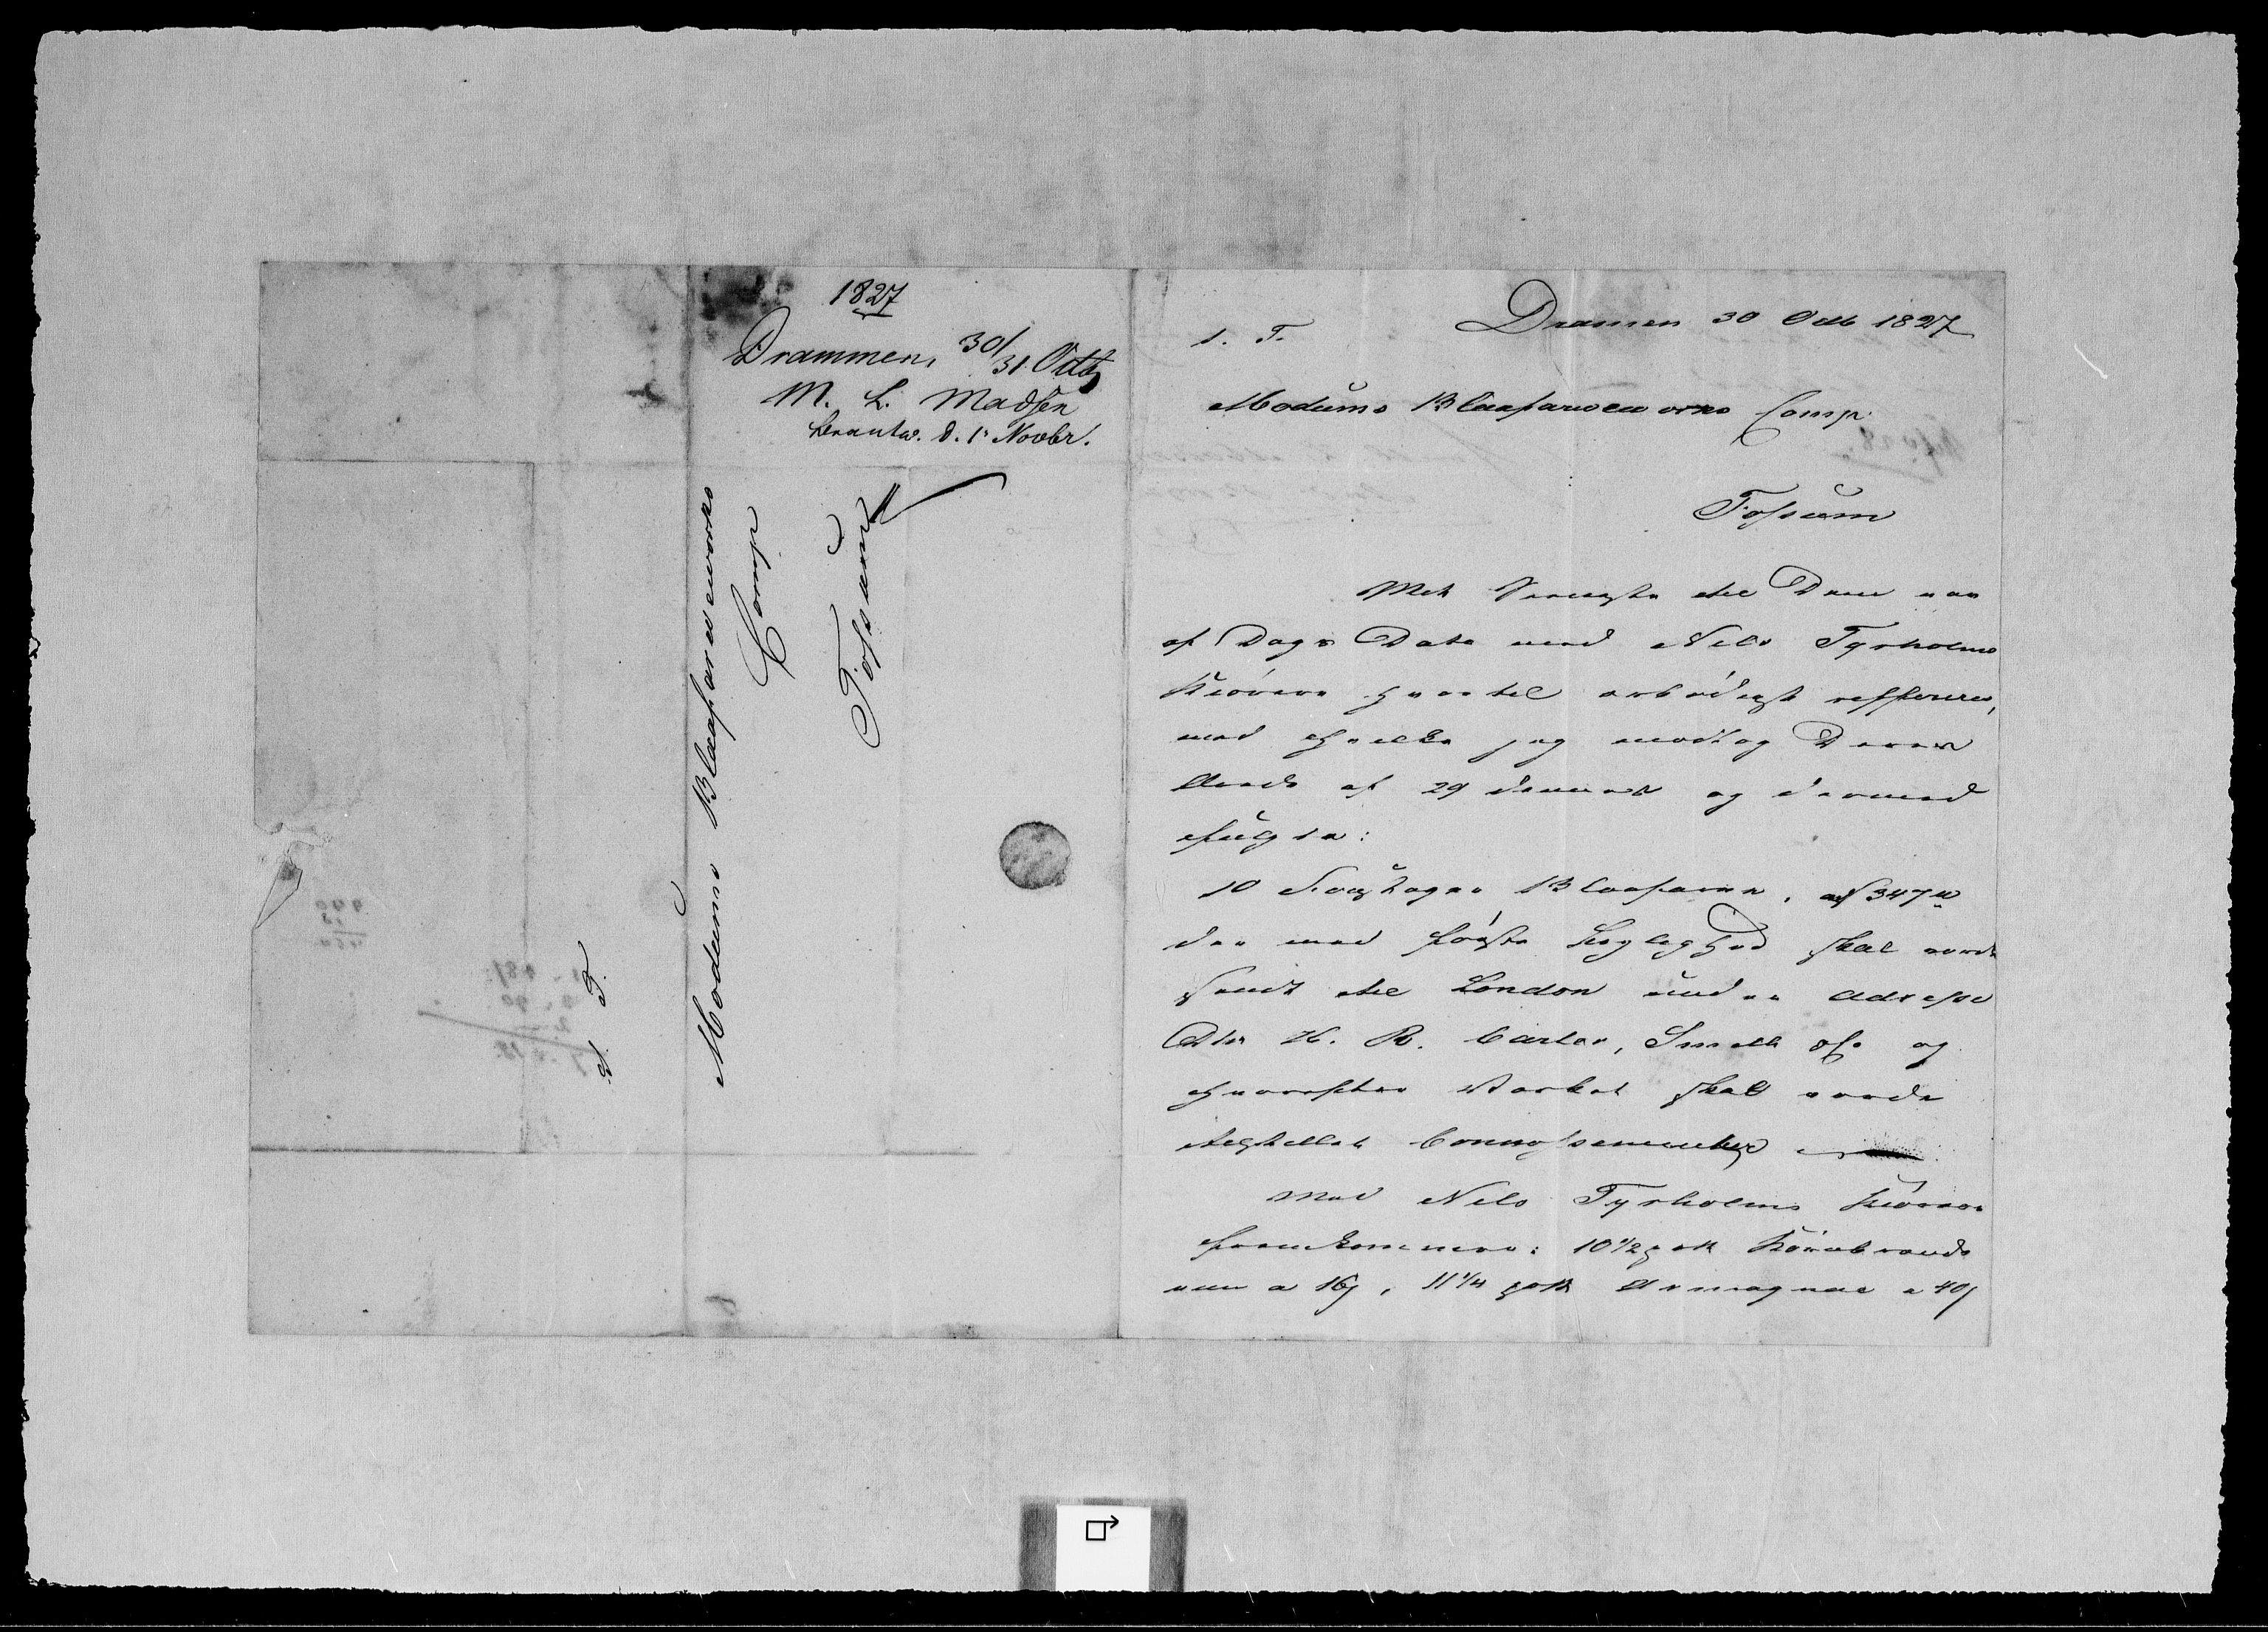 1827
Drammen, 30/31 Octb
M. L. Madsen
besvaret d. 1 Novbr.
S. T.
Modums Blaafarveværks
Comp
Fossum
S. T.
Dramen 30 Octb 1827
Modums Blaafarveværks Comp
Fossum
Mit Seneste til Dem var
af Dags Dato med Niels Tyrholms
Kiørere hvortil ærbødigst refferere,
med hvilke jeg modtog Deres
Ærede af 29 dennes og dermed
fulgte:
10 Fustager Blaafarve, af 347 ℔
der med første Leylighed skal vorde
sendt til London under Adresse
DHr H. R. Carter, Smith & Co og
hvorefter Værket skal vorde
tilstillet Connossementer
Med Niels Tyrholms Kiørere
fremkommer: 10 1/2 pott Kornbrænde
viin a 16 s, 11 1/4 pott Armagnac a 40 s